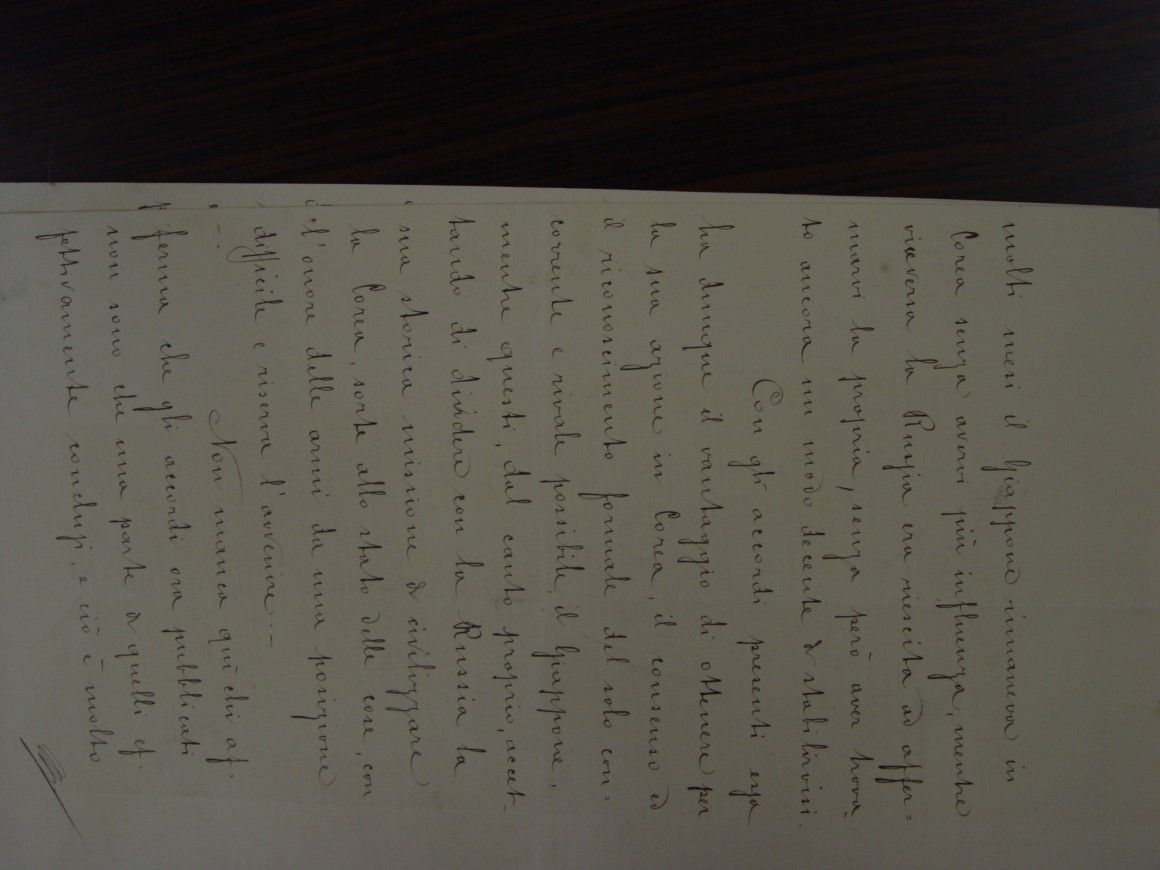 molti mesi il Giappone rimaneva in
Corea senza avervi più influenza, mentre
viceversa la Russia era riescita ad affer=
marvi la propria, senza però aver trova-
to ancora un modo decente di stabilirvisi.
Con gli accordi presenti essa
ha dunque il vantaggio di ottenere per
la sua azione in Corea, il consenso ed
il riconoscimento formale del solo con-
corrente e rivale possibile, il Giappone,
mentre questi, dal canto proprio, accet-
tando di dividere con la Russia la
sua storica missione di civilizzare
la Corea, sorte allo stato delle cose, con
l'onore delle armi da una posizione
difficile e riserva l'avvenire.-
Non manca quì chi af-
ferma che gli accordi ora pubblicati
non sono che una parte di quelli ef-
fettivamente conclusi, e ciò è molto